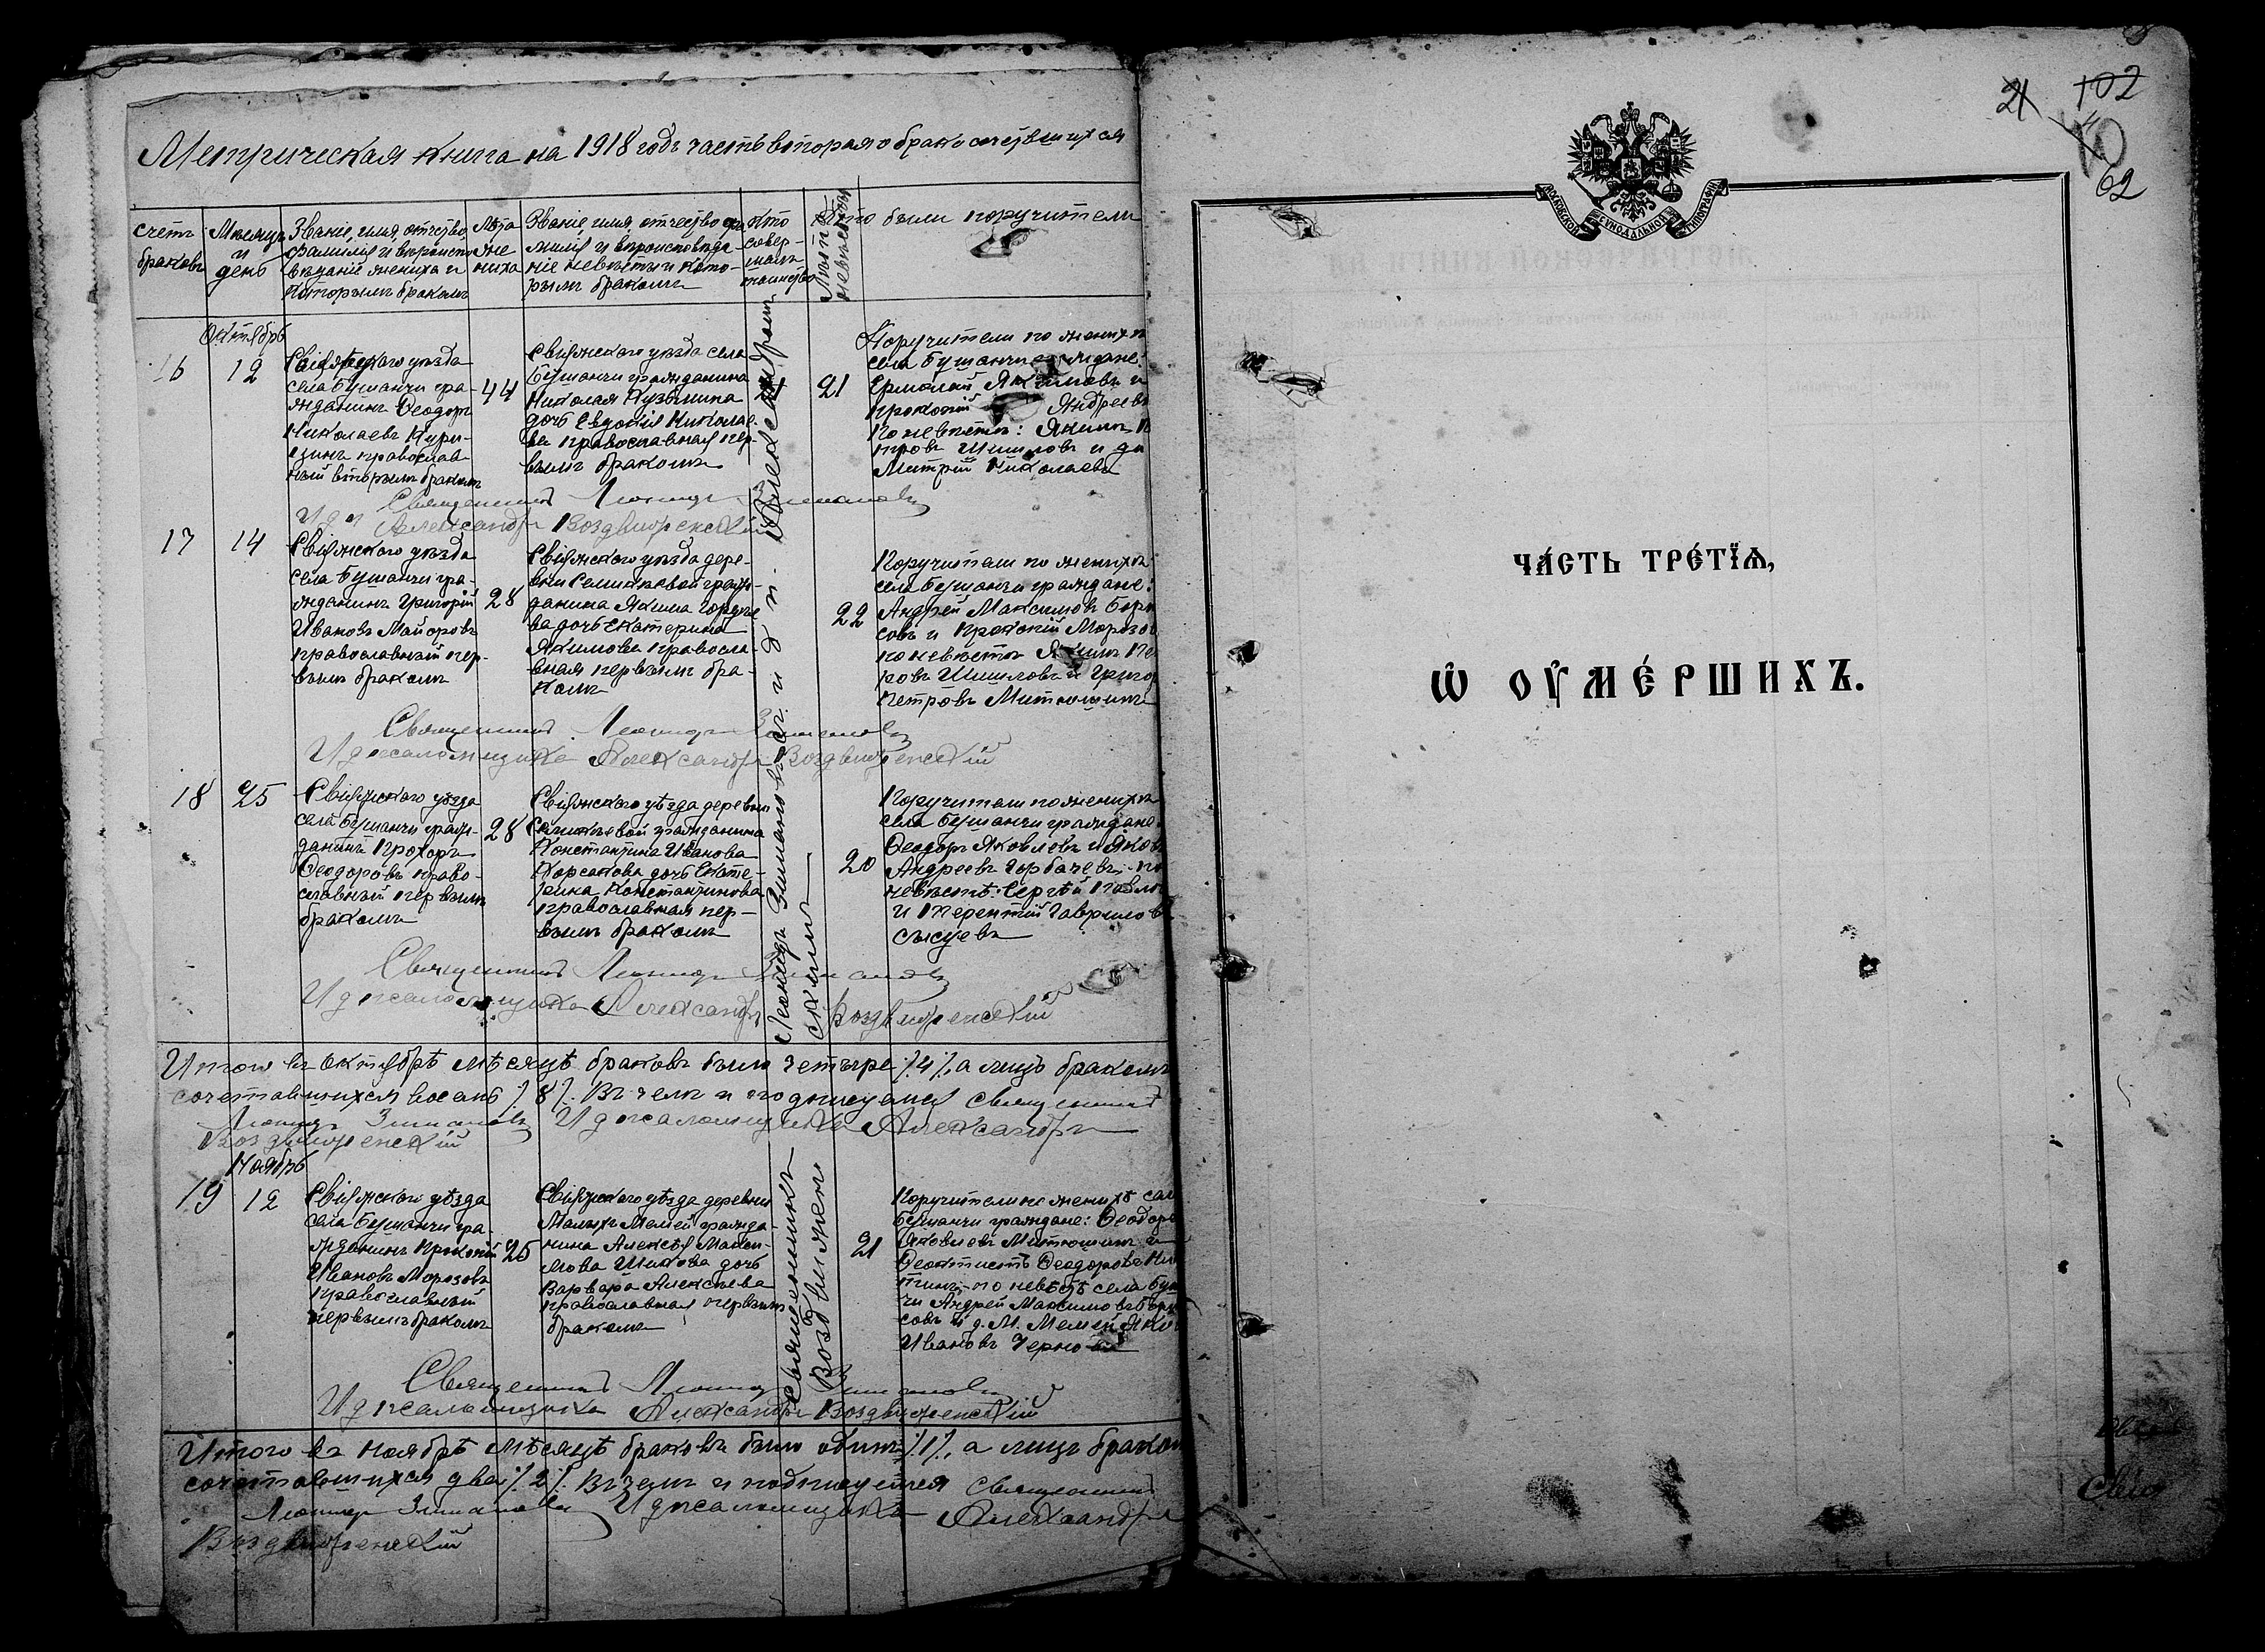 Метрическая книга на 1918 годъ часть вторая о бракосочетавшихся
счетъ браковъ
Мѣсяцъ и день
Званіе, имя, отчество,
фамилія и вѣроиспо
вѣданіе жениха и
которымъ бракомъ
Лѣта
же
ниха
Званіе, имя, отчество, фа
милія и вѣроисповѣда-
ніе невѣсты и кото-
рымъ бракомъ
Кто
совер-
шалъ
таинство
Лѣта
невѣсты
Кто были поручители
Октябрь
16
12
Свіяжскаго уѣзда
села Бушанчи гра-
жданинъ Ѳеодоръ
Николаевъ
православ
ный вторымъ бракомъ
44
Свіяжскаго уѣзда села
Бушанчи гражданина
Николая Кузьмина
дочь Евдокія Николае-
ва православная пер-
вымъ бракомъ
21
Поручители по женихѣ
села Бушанчи граждане:
Ермолай Якимовъ и
Прокопій Андреевъ
По невѣстѣ: Якимъ П
тровъ Шишловъ и Ди
Митрій Николаевъ
Священникъ Леонидъ Зимановъ
И д п Александръ Воздвиженскій
17
14
Свіяжскаго уѣзда
села Бушанчи гра-
жданинъ Григорій
Ивановъ Майоровъ
православный пер-
вымъ бракомъ
28
Свіяжскаго уѣзда дере-
вни граж-
данина Якима Гордѣе
ва дочь Екатерина
Якимова правосла-
вная первымъ бра-
комъ
22
Поручители по женихѣ
села Бушанчи граждане:
Андрей Максимовъ Бори
совъ и Прокопій Морозов
по невѣстѣ Якимъ Пе
ровъ Шишловъ и Григо
Петровъ Митюшинъ
Священникъ Леонидъ Зимановъ
И д псаломщика Александръ Воздвиженскій
18
25
Свіяжскаго уѣзда
села Бушанчи граж-
данинъ Прохоръ
Ѳеодоровъ право-
славный первымъ
бракомъ
28
Свіяжскаго уѣзда деревни
гражданина
Константина Иванова
Корсакова дочь Екате-
рина Константинова
православная пер-
вымъ бракомъ
20
Поручители по женихѣ
села Бушанчи граждане
Ѳеодоръ Яковлевъ и Яков
Андреевъ Горбачевъ, по
невѣстѣ: Сергѣй Павло
и Терентій Гавриловъ
Сысуевъ
Священникъ Леонидъ Зимановъ
И д псаломщика Александръ Воздвиженскій
Священникъ Леонидъ Зимановъ и д п. Александръ
Воздвиженскій
Итого въ октябрѣ мѣсяцѣ браковъ было четыре /.4/., а лицъ бракомъ
сочетавшихся восемь /.8/. Въ чемъ и подписуемся Священникъ
Леонидъ Зимановъ И д псаломщика Александръ
Воздвиженскій
Ноябрь
19
12
Свіяжскаго уѣзда
села Бушанчи гра-
жданинъ Прокопій
Ивановъ Морозовъ
православный
первымъ бракомъ
25
Свіяжскаго уѣзда деревни
Малыхъ Мемей гражда-
нина Алексѣя Макси-
мова Шикова дочь
Варвара Алексѣева
православная первымъ
бракомъ
21
Поручители по женихѣ села
Бушанчи граждане: Ѳеодоръ
Яковлевъ Митюшинъ и
Ѳеоктистъ Ѳеодоровъ Ни
тинъ, по невѣстѣ села Буша
чи Андрей Максимовъ Бори
совъ и д. М. Мемей Яко
Ивановъ Черновъ
Священникъ Леонидъ Зимановъ
И д псаломщика Александръ Воздвиженскій
Итого въ ноябрѣ мѣсяцѣ браковъ было одинъ /.1/., а лицъ браком
сочетавшихся два /.2/. Въ чемъ и подписуемся Священникъ
Леонидъ Зимановъ И д псаломщика Александръ
Воздвиженскій
21
102
62
МОСКОВСКОЙ СѴНОДАЛЬНОЙ ТИПОГРАФІИ
ЧА́СТЬ ТРЕ́ТЇѦ,
Ѡ҆ ОУ҆МЕ́РШИХЪ.